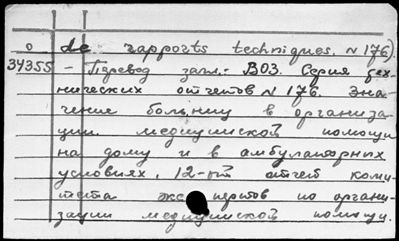 o de rapports techniques. N 176).
34355 - Перевод загл.: ВОЗ. Серия тех-
нических отчетов N 176. Зна-
чение больниц в организа-
ции медицинской помощи
на дому и в амбулаторных
условиях. 12-ый отчет коми-
тета экспертов по органи-
зации медицинской помощи.